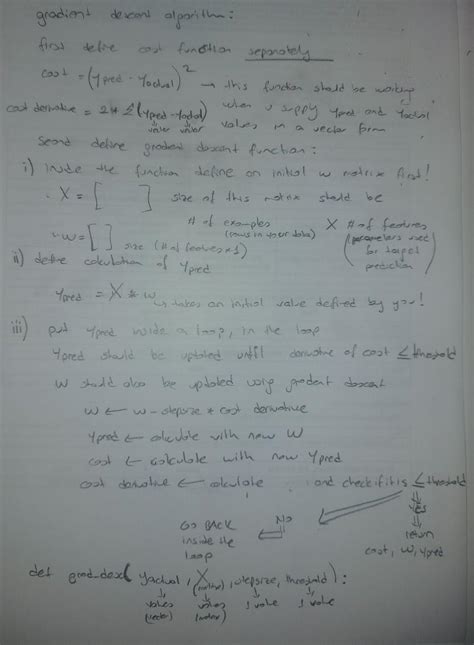 gradient descent algorithm:
first define cost function separately
cost = (ypred - yactual)² → this function should be working
cost derivative = 2 * Σ (ypred - yactual) when u supply ypred and yactual
vector vector values in a vector form
Second define gradient descent function:
i) inside the function define an initial w matrix first!
. X = [ ] size of this matrix should be
# of examples (rows in your data) X # of features (parameters used for target prediction)
. w = [ ] size (# of features * 1)
ii) define calculation of ypred
ypred = X * w
↳ takes an initial value defined by you!
iii) put ypred inside a loop, in the loop
ypred should be updated until derivative of cost ≤ threshold
W should also be updated using gradient descent
w ← w - stepsize * cost derivative
ypred ← calculate with new W
cost ← calculate with new ypred
cost derivative ← calculate and check if it is ≤ threshold
NO
Yes
GO BACK inside the loop
return
cost, w, ypred
def grad_desc( yactual, X (matrix), stepsize, threshold):
values (vector) values (matrix) 1 value 1 value